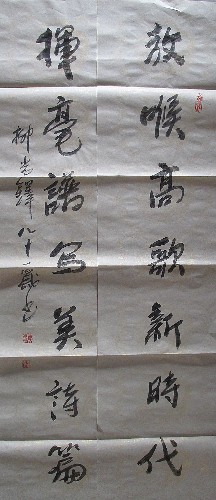 放喉高歌新時代
揮毫譜写美詩篇
柳尚鐸八十一歲書